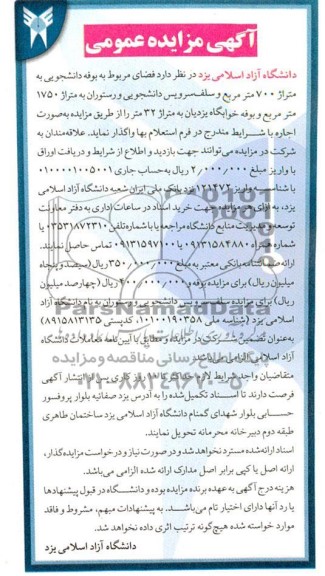 آگهی مزایده عمومی
دانشگاه آزاد اسلامی یزد در نظر دارد فضای مربوط به بوفه دانشجویی به
متراژ ۷۰۰ متر مربع و سلف‌سرویس دانشجویی و رستوران به متراژ ۱۷۵۰
متر مربع و بوفه خوابگاه یزدیان به متراژ ۳۲ متر را از طریق مزایده به‌صورت
اجاره با شرایط مندرج در فرم استعلام بها واگذار نماید. علاقه‌مندان به
شرکت در مزایده می‌توانند جهت بازدید و اطلاع از شرایط و دریافت اوراق
با واریز مبلغ ۲/۰۰۰/۰۰۰ ریال به حساب جاری ۰۱۰۰۰۰۱۰۰۵۰۰۱
با شناسه واریز ۱۲۱۴۷۲ نزد بانک ملی ایران شعبه دانشگاه آزاد اسلامی
یزد، به عنوان مزایده جهت خرید اسناد در ساعات اداری به دفتر معاونت
توسعه و مدیریت منابع دانشگاه مراجعه یا با شماره تلفن ۰۳۵۳۱۸۷۲۳۱۰ یا
شماره همراه ۰۹۱۳۱۵۸۴۸۸۰ یا ۰۹۱۳۱۵۹۷۱۰۰ تماس حاصل نمایند.
ارائه ضمانتنامه بانکی معتبر به مبلغ ۳۵۰/۰۰۰/۰۰۰ ریال (سیصد و پنجاه
میلیون ریال) برای مزایده بوفه و ۴۰۰/۰۰۰/۰۰۰ ریال (چهارصد میلیون
ریال) برای مزایده سلف سرویس دانشجویی و رستوران به نام دانشگاه آزاد
اسلامی یزد (شناسه ملی ۱۰۱۰۰۱۹۰۳۵۸، کدپستی ۸۹۱۵۸۱۳۱۳۵)
به‌عنوان تضمین شرکت در مزایده و مطابق با آیین نامه معاملات دانشگاه
آزاد اسلامی الزامی می‌باشد.
متقاضیان واجد شرایط لازم حداکثر تا ۱۸ روز کاری پس از انتشار آگهی
فرصت دارند تا اسناد تکمیل شده را به آدرس یزد صفائیه بلوار پروفسور
حسابی بلوار شهدای گمنام دانشگاه آزاد اسلامی یزد ساختمان طاهری
طبقه دوم دبیرخانه محرمانه تحویل نمایند.
اسناد ارائه شده مسترد نخواهد شد و در صورت نیاز و درخواست مزایده‌گذار،
ارائه اصل یا کپی برابر اصل مدارک ارائه شده الزامی می‌باشد.
هزینه درج آگهی به عهده برنده مزایده بوده و دانشگاه در قبول پیشنهادها
یا رد آنها دارای اختیار تام می‌باشد. به پیشنهادات مبهم، مشروط و فاقد
موارد خواسته شده هیچ‌گونه ترتیب اثری داده نخواهد شد.
دانشگاه آزاد اسلامی یزد
ParsNamadData
۰۲۱-۸۸۳۴۹۶۷۰-۵